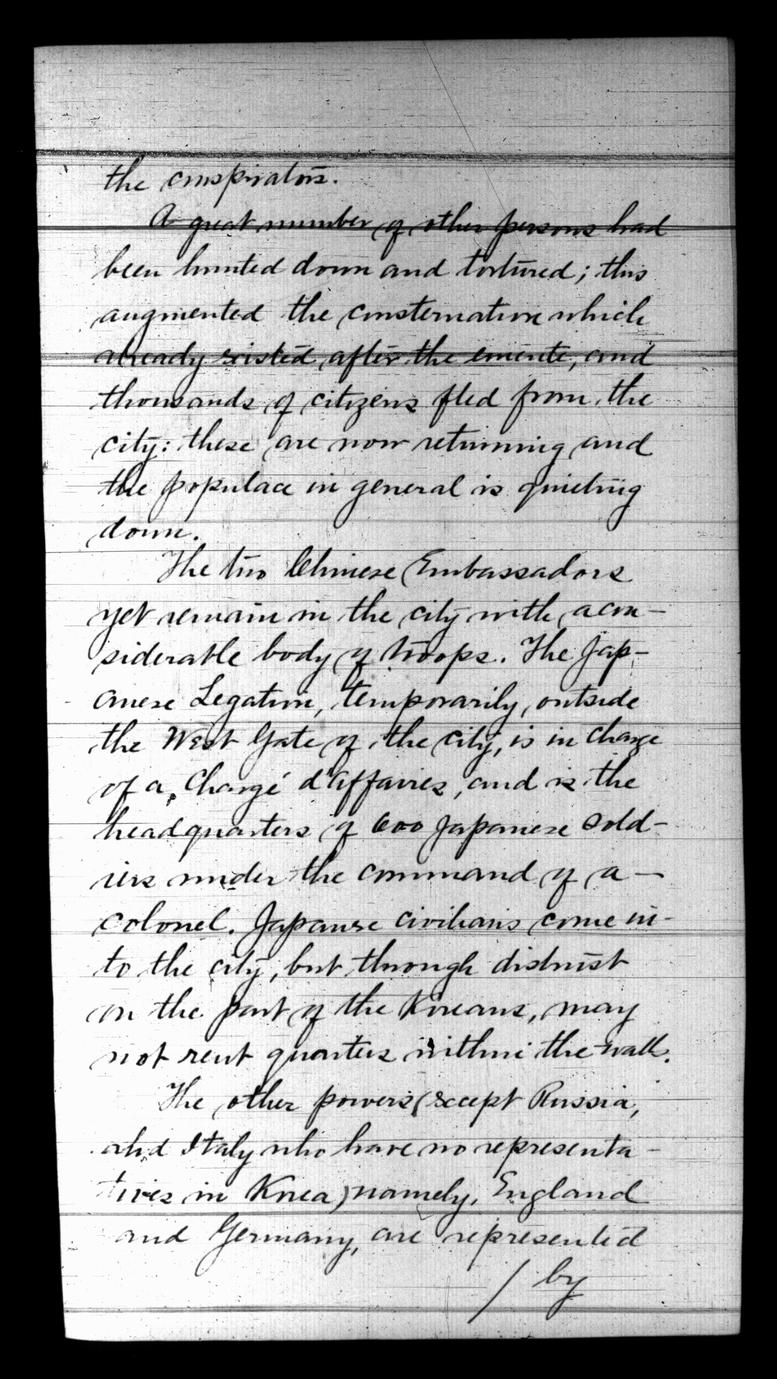 the conspirators.
A great number of other persons had
been hunted down and tortured; this
augmented the consternation which
already existed after the emeute, and
thousands of citizens fled from the
city: these are now returning and
the populace in general is quieting
down.
The two Chinese Embassadors
yet remain in the city with a con-
siderable body of troops. The Jap-
anese Legation, temporarily, outside
the West Gate of the city, is in charge
of a, Chargé d'Affaires, and is the
headquarters of 600 Japanese sold-
iers under the command of a —
colonel. Japanese civilians come in-
to the city, but through distrust
on the part of the Koreans, may
not rent quarters within the wall.
The other powers (except Russia,
and Italy who have no representa-
tives in Korea) namely, England
and Germany, are represented
/ by